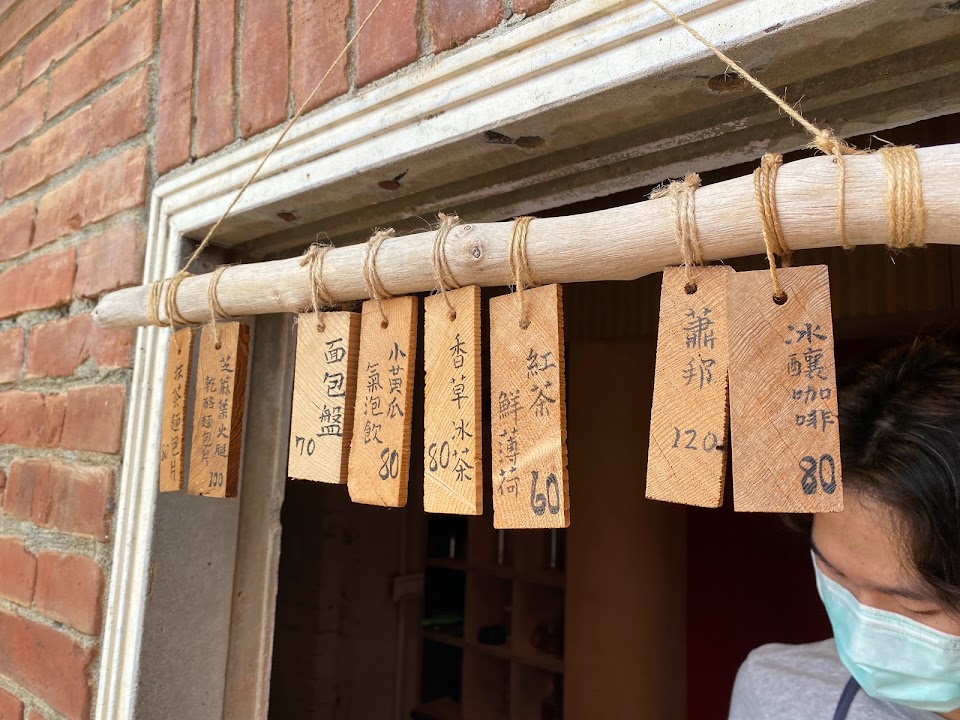 抹茶麵包片
芝麻葉火腿
乾酪麵包片
100
面包盤
70
小黃瓜
氣泡飲
80
香草冰茶
80
紅茶
鮮薄荷
60
蕭邦
120
冰釀咖啡
80